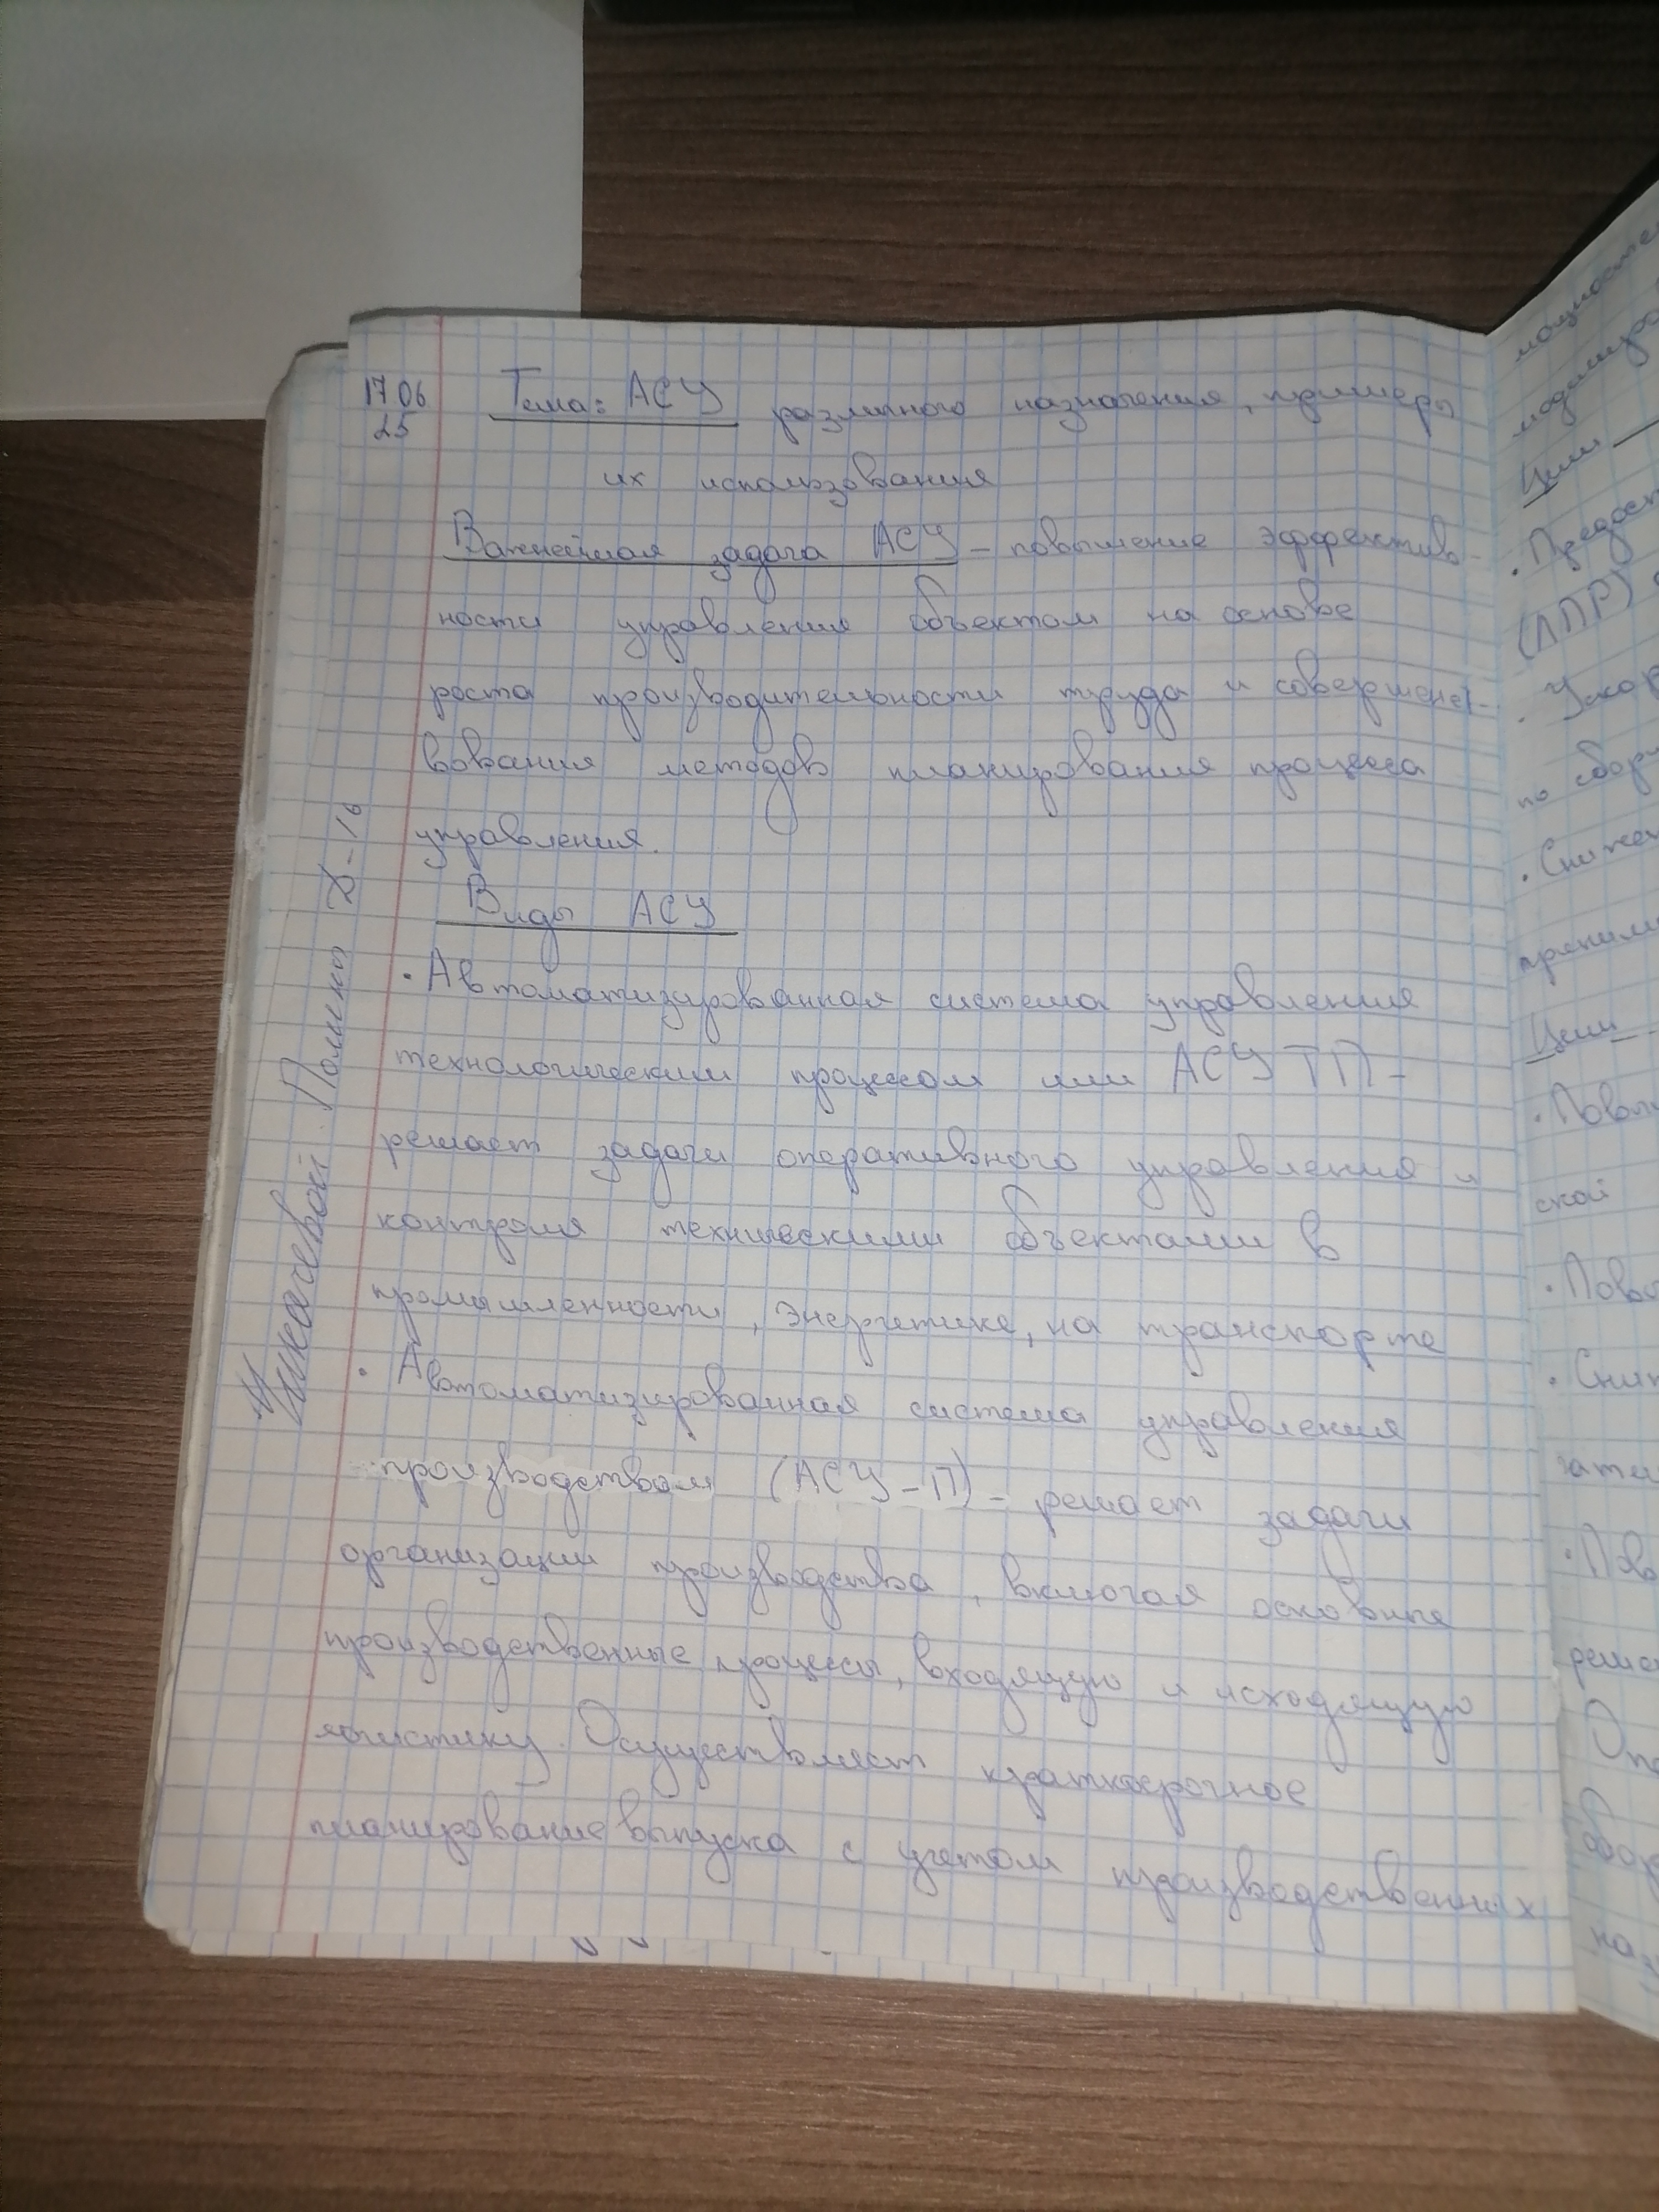 17 06
25
Тема: АСУ различного назначения, примеры
их использования
Важнейшая задача АСУ - повышение эффектив-
ности управления объектом на основе
роста производительности труда и совершенст-
вования методов планирования процесса
управления.
Виды АСУ
· Автоматизированная система управления
технологическим процессом или АСУ ТП -
решает задачи оперативного управления и
контроля техническими объектами в
промышленности, энергетике, на транспорте
· Автоматизированная система управления
производством (АСУ-П) - решает задачи
организации производства, включая основные
производственные процессы, входящую и исходящую
логистику. Осуществляет краткосрочное
планирование выпуска с учетом производственных
Полины Д-16
Цели
· Предост
(ЛПР)
· Ускор
по сбор
· Сниже
Цели -
· Повы
ской
· Повы
· Сниж
затра
· Пов
реше